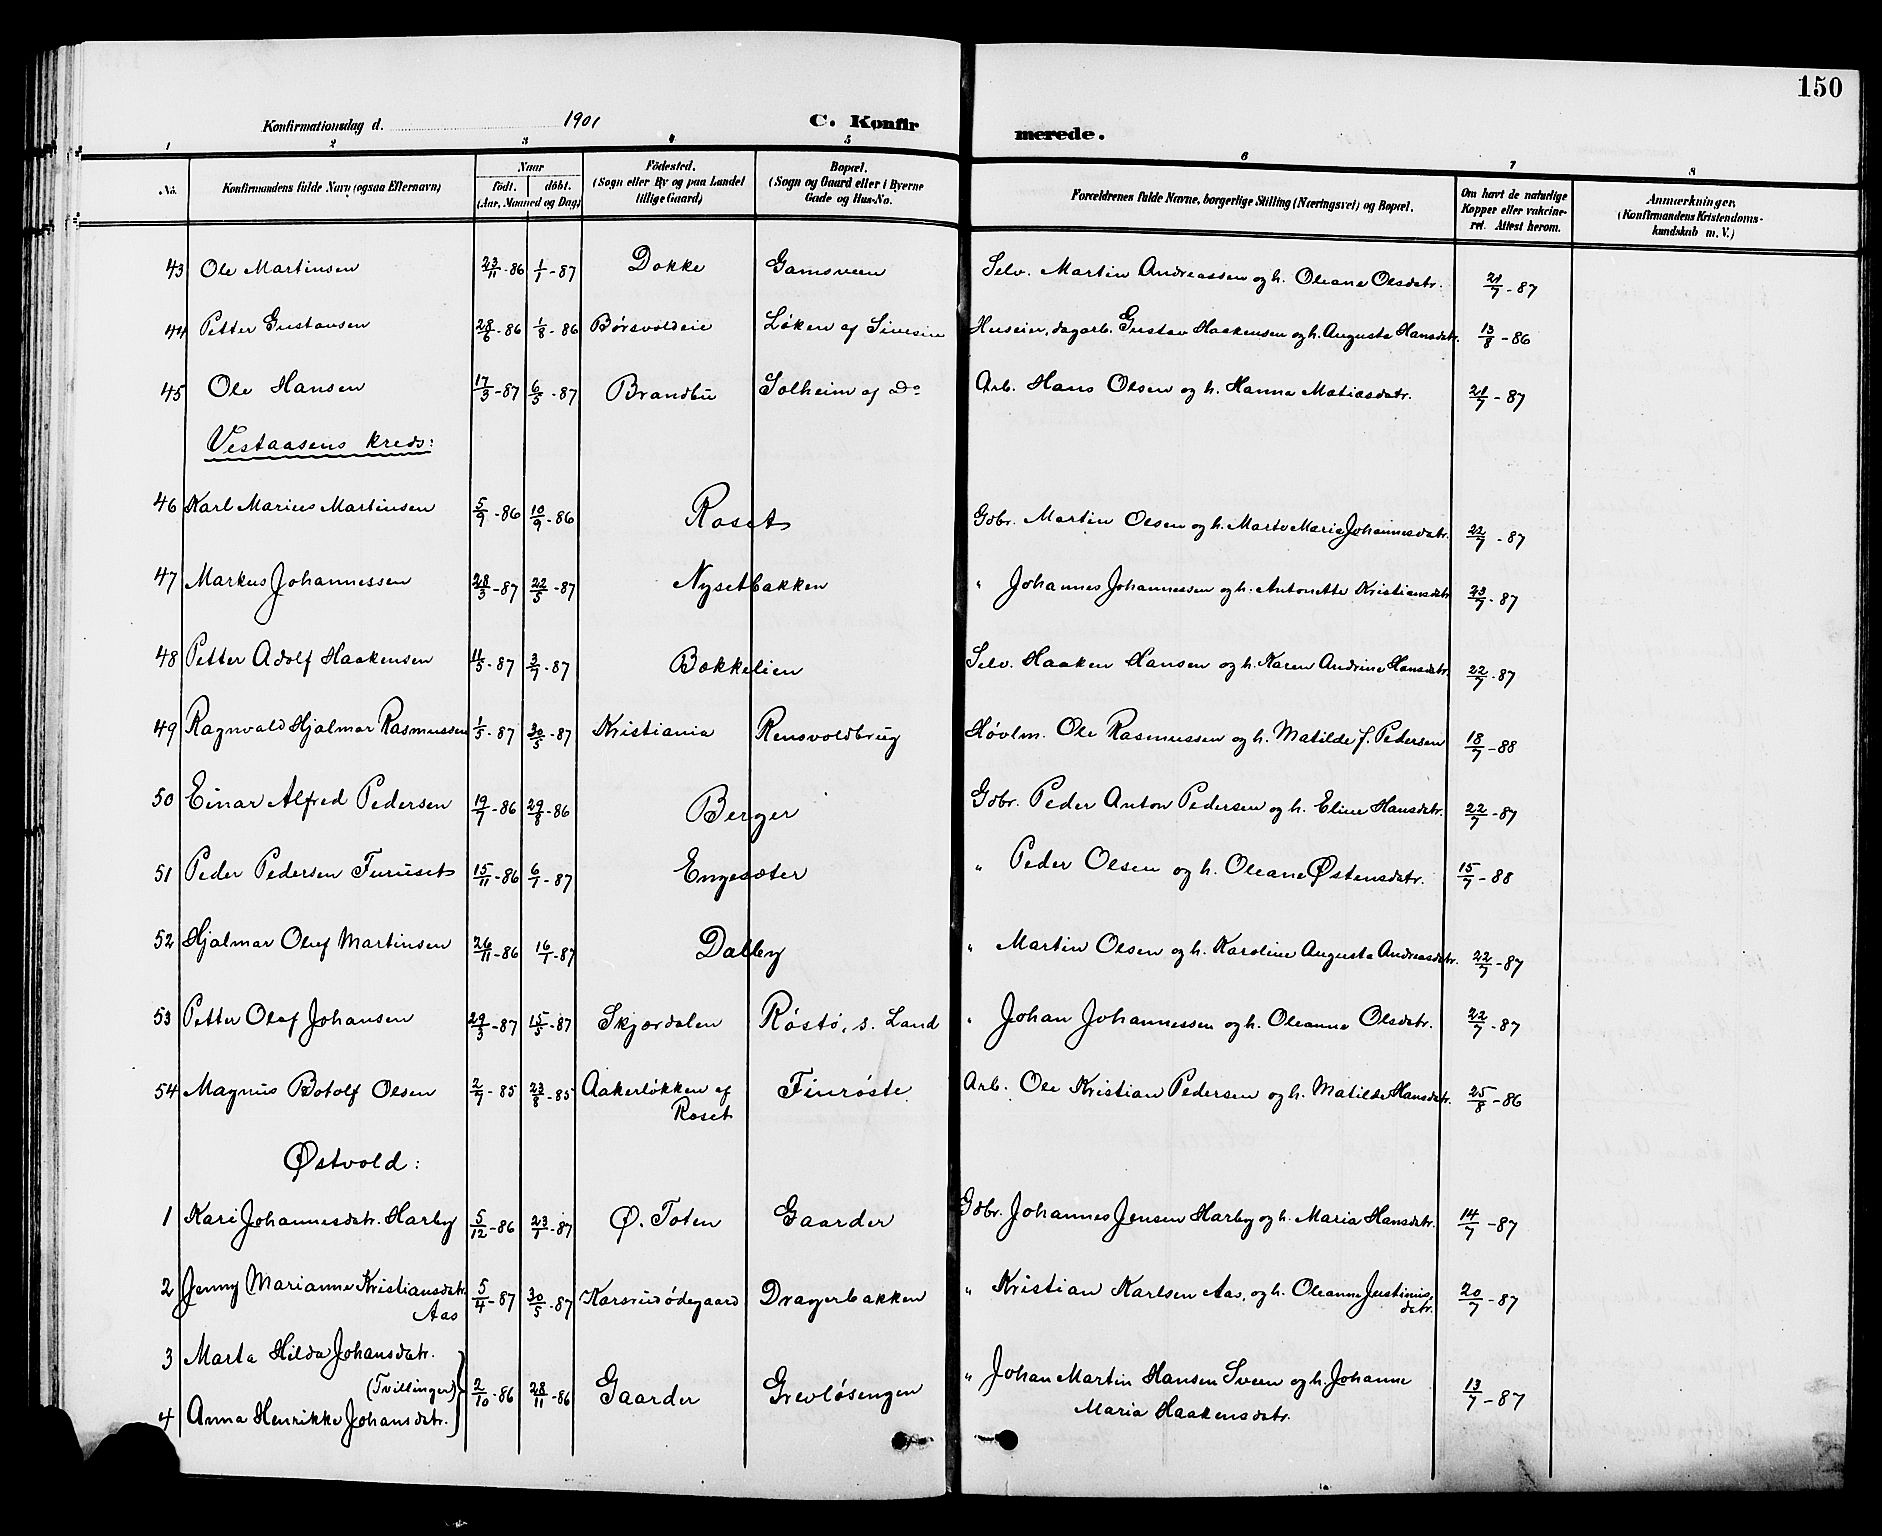 150
Konfirmationsdag d. 1901 C. Konfirmerede.
1 2 3 4 5 6 7 8
No. Konfirmandens fulde Navn (ogsaa Efternavn) Naar födt. döbt. (Aar, Maaned og Dag) Födested. (Sogn eller By og paa Landet tillige Gaard) Bopæl. (Sogn og Gaard eller i Byerne Gade og Hus-No. Forældrenes fulde Navne, borgerlige Stilling (Næringsvei) og Bopæl. Om havt de naturlige Kopper eller vakcineret. Attest herom. Anmærkninger. (Konfirmandens Kristendomskundskab m. V.)
43 Ole Martinsen 23/11-86 1/1-87 Dokke Gamsveen Selv. Martin Andreassen og h. Oleane Olsdatr. 21/7-87
44 Petter Gustavsen 28/6-86 1/8-86 Børsvoldeie Løken af Sivesin Huseier, dagarb. Gustav Haakensen og h. Auguste Hansdatr. 13/8-86
45 Ole Hansen 17/3-87 6/5-87 Brandbu Solheim af Do Arb. Hans Olsen og h. Hanna Matiasdatr. 21/7-87
Vestaasens kreds:
46 Karl Marius Martinsen 5/9-86 10/9-86 Roset Gdbr. Martin Olsen og h. Marte Marie Johannesdatr. 22/7-87
47 Markus Johannessen 28/3-87 22/5-87 Nysetbakken " Johannes Johannessen og h. Antonette Kristiansdatr 23/7-87
48 Petter Adolf Haakensen 11/5-87 3/7-87 Bokkelien Selv. Haaken Hansen og h. Karen Andrine Hansdatr. 22/7-87
49 Ragnvald Hjalmar Rasmussen 1/5-87 30/5-87 Kristiania Rensvoldbrug Høvlm. Ole Rasmussen og h. Matilde f. Pedersen 18/7-88
50 Einar Alfred Pedersen 19/7-86 29/8-86 Berger Gdbr. Peder Anton Pedersen og h. Eline Hansdatr. 22/7-87
51 Peder Pedersen Furuset 15/11-86 6/7-87 Engesæter " Peder Olsen og h. Oleane Østensdatr. 15/7-88
52 Hjalmar Oluf Martinsen 26/11-86 16/1-87 Dalby " Martin Olsen og h. Karoline Augusta Andreasdatr. 22/7-87
53 Petter Olaf Johansen 29/3-87 15/5-87 Skjærdalen Røstø, s. Land " Johan Johannessen og h. Oleanna Olsdatr. 22/7-87
54 Magnus Botolf Olsen 2/7-85 23/8-85 Aakerløkken af Roset Finrøste Arb. Ole Kristian Pedersen og h. Matilde Hansdatr. 25/8-86
Østvold:
1 Kari Johannesdatr. Harby 5/12-86 23/1-87 Ø. Toten Gaarder Gdbr. Johannes Jensen Harby og h. Maria Hansdatr. 14/7-87
2 Jenny Marianne Kristiansdatr. Aas 5/4-87 30/5-87 Karsrudødegaard Dragerbakken " Kristian Karlsen Aas, og h. Oleanna Justinusdatr. 20/7-87
3 Marta Hilda Johansdatr.
(Tvillinger) 2/10-86 28/11-86 Gaarder Grevløsengen " Johan Martin Hansen Sveen og h. Johanne Maria Haakensdatr. 13/7-87
4 Anna Henrikke Johansdatr.